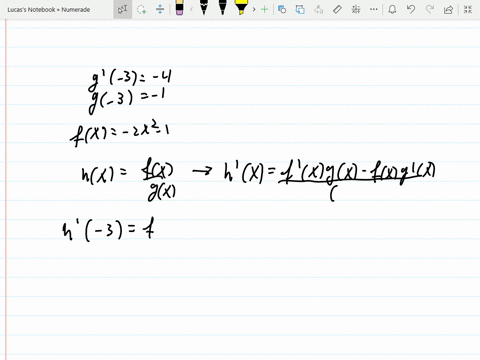 Lucas's Notebook • Numerade
g'(-3) = -4
g(-3) = -1
f(x) = -2x²-1
h(x) = f(x)/g(x) → h'(x) = f'(x)g(x) - f(x)g'(x)/(
h'(-3) = f